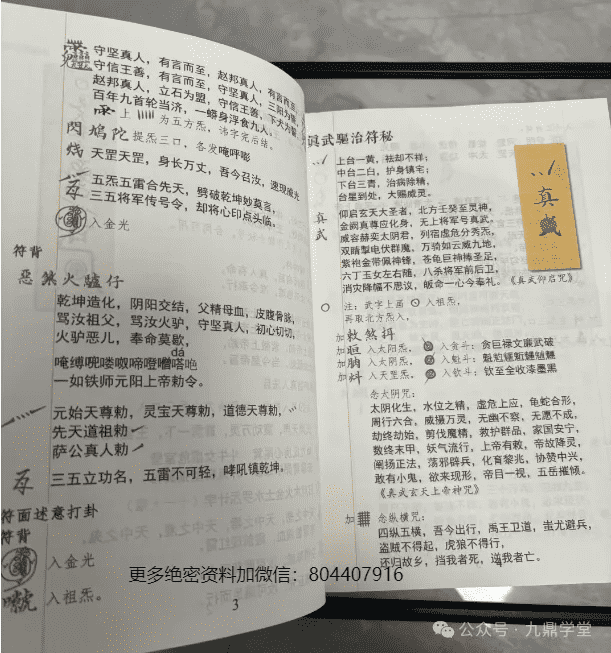 守坚真人，有言而至，赵邦真人，有言而至。
守信王善，有言而至，守坚真人，三阳为猿，
赵邦真人，立石为盟，守信王善，下犬为誓，
百年九首轮当济，一蟒身浮食九人。
上 为五方炁，讳字完后结。
閃鳩陀 提炁三口，各发唵呼嘭
天罡天罡，身长万丈，吾今召汝，速现威光
五炁五雷合先天，劈破乾坤妙莫言，
三五将军传号令，却将心印点头临。
入金光
符背
惡煞火驢仔
乾坤造化，阴阳交结，父精母血，皮腹骨脉，
骂汝祖父，骂汝火驴，守坚真人，初心切切，
火驴恶儿，奉命莫歇，
dá
一如铁师元阳上帝勅令。
元始天尊勅，灵宝天尊勅，道德天尊勅，
先天道祖勅
萨公真人勅
三五立功名，五雷不可轻，哮吼镇乾坤。
符面述意打卦
符背
入金光
入祖炁。
3
真武驅治符秘
上台一黄，祛却不祥；
中台二白，护身镇宅；
下台三青，治病除精，
台星到处，大赐威灵。
真武
真武
仰启玄天大圣者，北方壬癸至灵神，
金阙真尊应化身，无上将军号真武，
威容赫奕太阴君，列宿虚危分秀炁，
双睛掣电伏群魔，万骑如云威九地，
紫袍金带佩神锋，苍龟巨神捧圣足，
六丁玉女左右随，八杀将军前后卫，
消灾降幅不思议，皈命一心今奉礼。《真武仰启咒》
注：武字上届 入祖炁，
再取北方炁入，
加
加 入太阳炁， 入食斗：贪巨禄文廉武破
加 入太阴炁， 入魁斗：
加 入天罡炁， 入钦斗：钦至全收漆墨黑
念太阴咒：
太阴化生，水位之精，虚危上应，龟蛇合形，
周行六合，威摄万灵，无幽不察，无愿不成，
劫终劫始，剪伐魔精，救护群品，家国安宁，
数终末甲，妖气流行，上帝有敕，帝故降灵，
阐扬正法，荡邪辟兵，化育黎兆，协赞中兴，
敢有小鬼，欲来现形，帝目一视，五岳摧倾。
《真武玄天上帝神咒》
加 念纵横咒：
四纵五横，吾今出行，禹王卫道，蚩尤避兵，
盗贼不得起，虎狼不得行，
还归故乡，挡我者死，逆我者亡。
4
更多绝密资料加微信：804407916
公众号·九鼎学堂